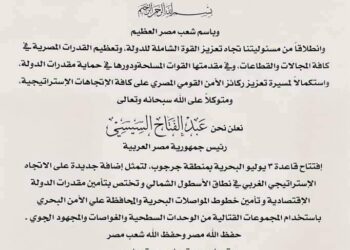 بسم الله الرحمن الرحيم
وباسم شعب مصر العظيم
وانطلاقاً من مسئوليتنا تجاه تعزيز القوة الشاملة للدولة، وتعظيم القدرات المصرية في
كافة المجالات والقطاعات، وفي مقدمتها القوات المسلحةودورها في حماية مقدرات الدولة.
واستكمالاً لمسيرة تعزيز ركائز الأمن القومي المصري على كافة الإتجاهات الإستراتيجية.
ومتوكلاً على الله سبحانه وتعالى
نعلن نحن عبد الفتاح السيسي
رئيس جمهورية مصر العربية
إفتتاح قاعدة ٣ يوليو البحرية بمنطقة جرجوب، لتمثل إضافة جديدة على الاتجاه
الإستراتيجي الغربي في نطاق الأسطول الشمالي و تختص بتأمين مقدرات الدولة
الإقتصادية و تأمين خطوط المواصلات البحرية والمحافظة علي الأمن البحري
باستخدام المجموعات القتالية من الوحدات السطحية والغواصات والمجهود الجوي .
حفظ الله مصر وحفظ الله شعب مصر